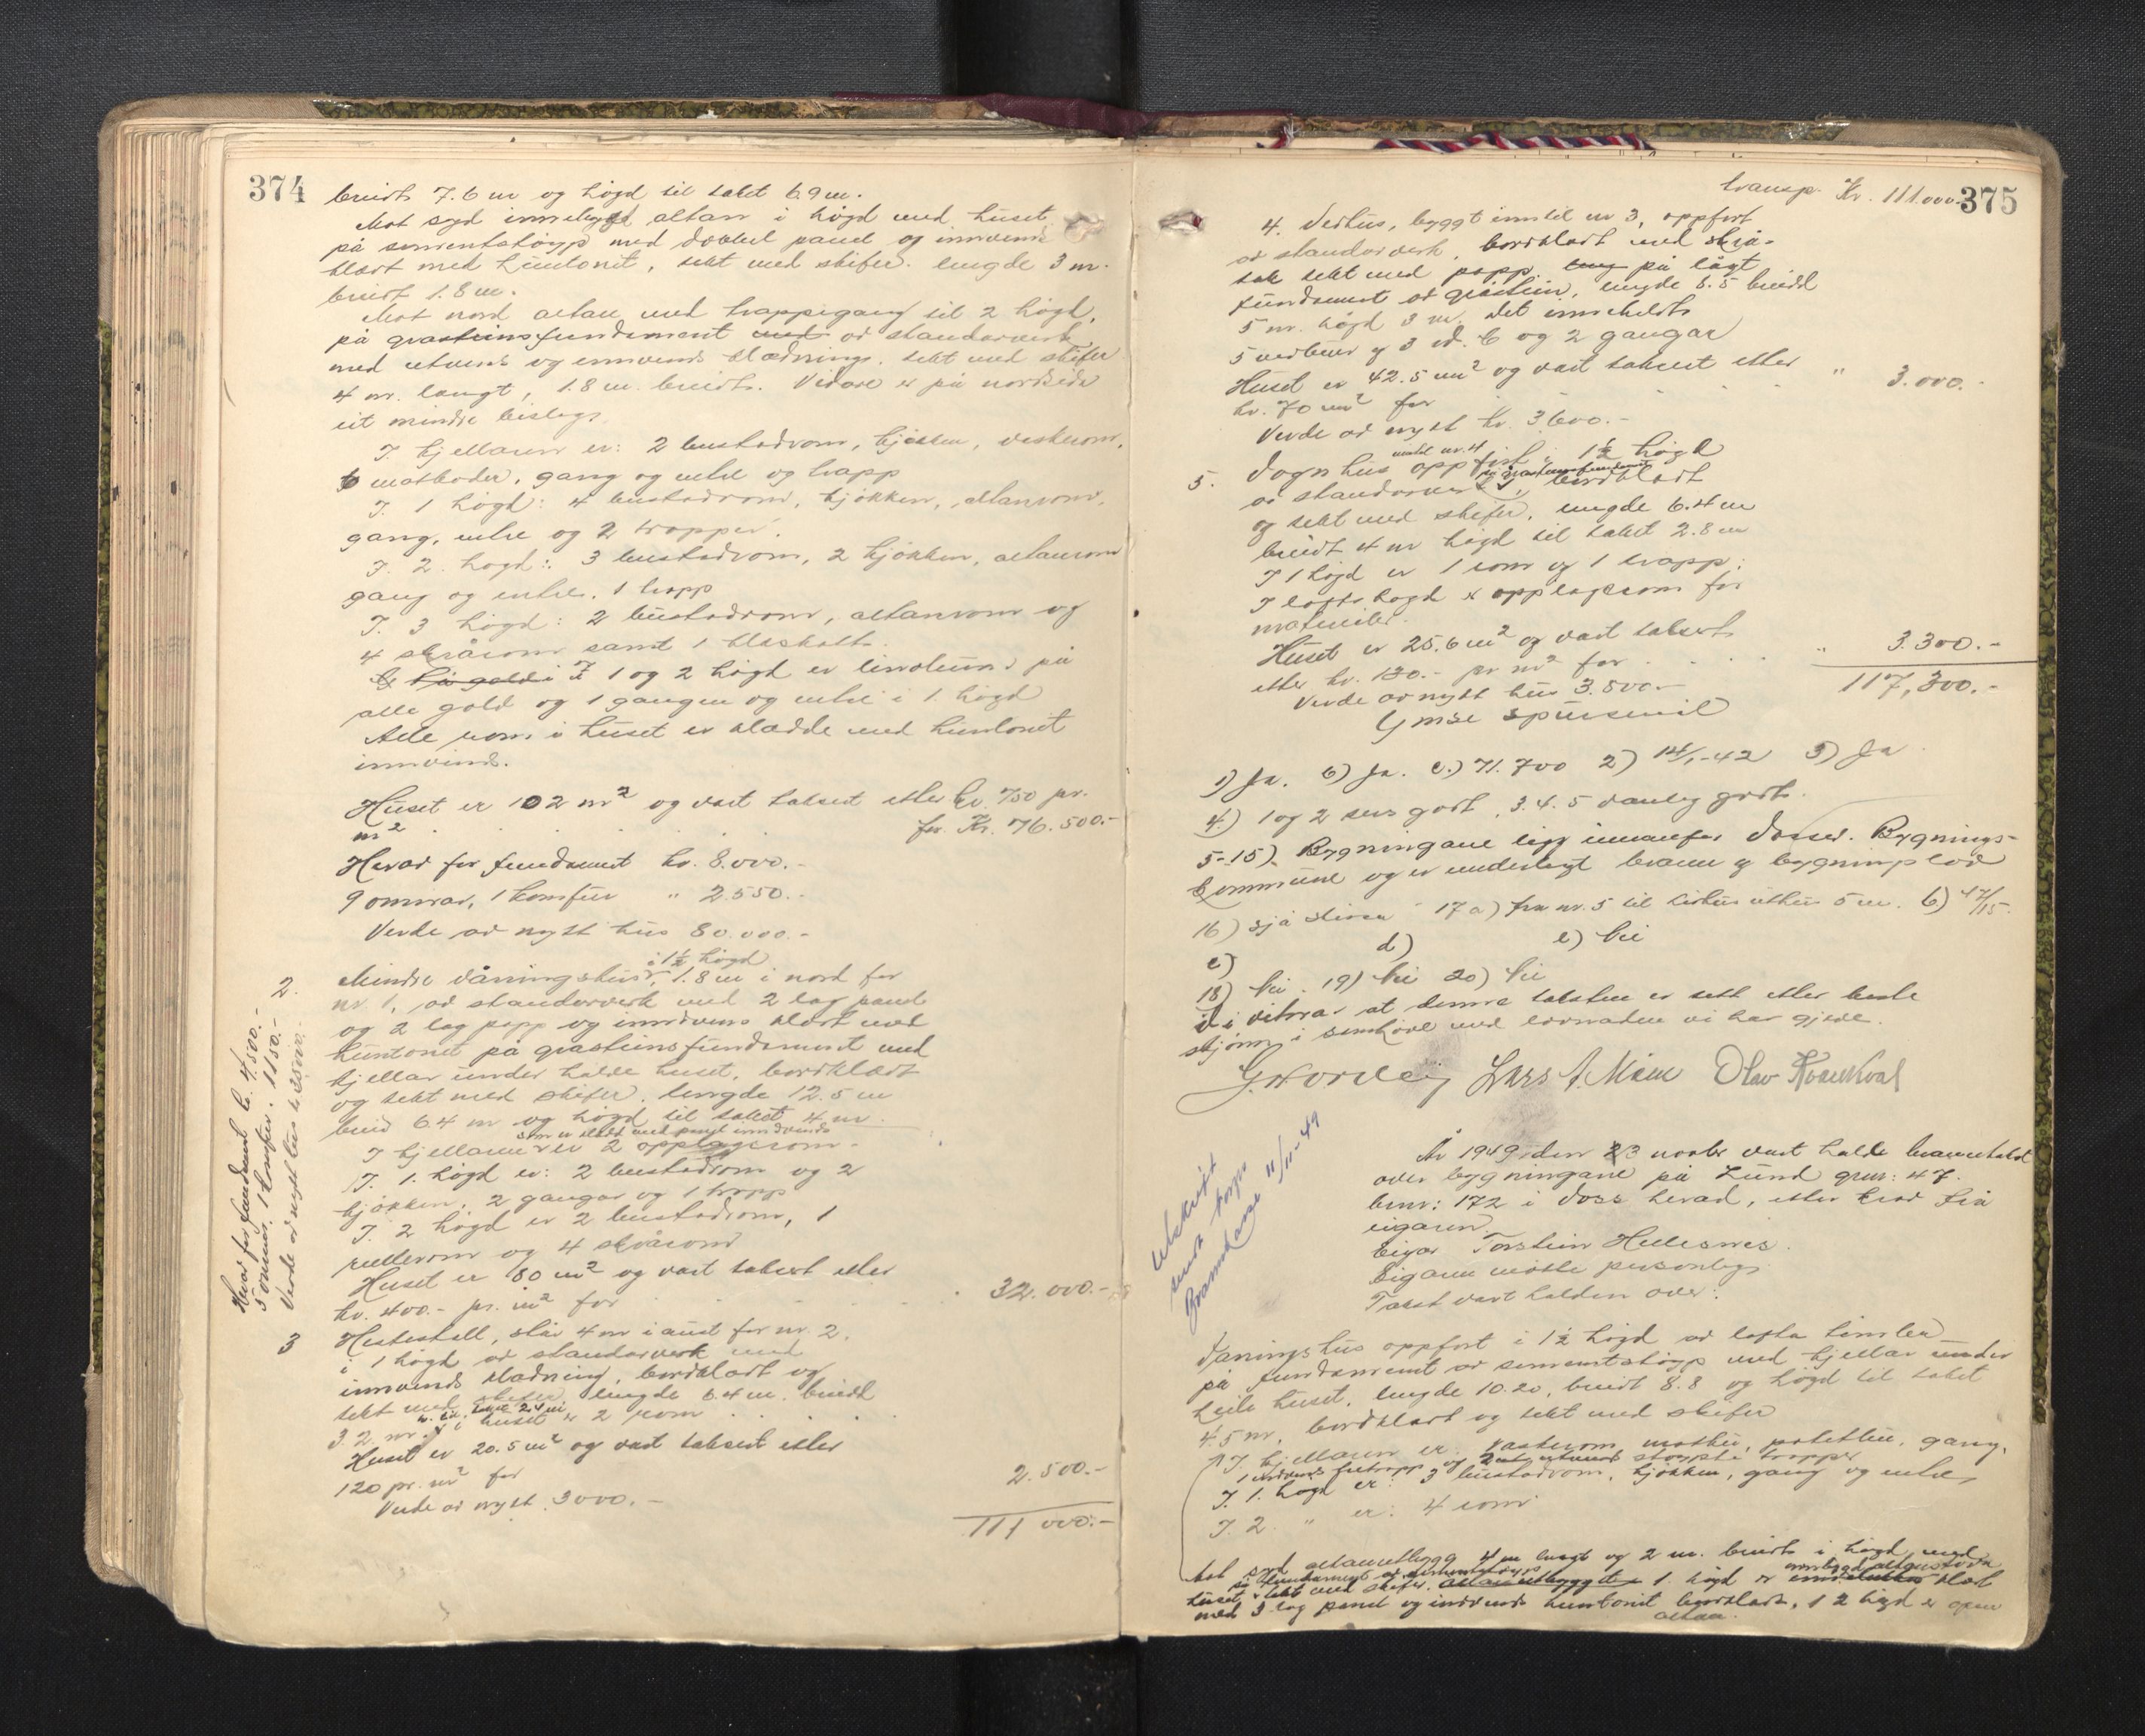 374
breidt 7.6 m og høgd til taket 6.9 m.
Mot syd innebygd altan i høgd med huset
på sementstøyp med dobbel panel og innvendi
klædt med huntonit, tekt med skifer. lengde 3 m.
breidt 1.8 m.
Mot nord altan med trappegang til 2 høgd,
på grasteinsfundament med av standarverk
med utvend og innvend klædning. tekt med skifer
4 m. langt, 1.8 m. breidt. Vidare er på nordside
eit mindre bislag.
I kjellaren er: 2 bustadrom, kjøkken, vaskerom,
6 matboder, gang og entre og trapp
I. 1 høgd: 4 bustadrom, kjøkken, altanrom,
gang, entre og 2 trapper.
I. 2. høgd: 3 bustadrom, 2 kjøkken, altanrom
gang og entre. 1 trapp
I. 3 høgd: 2 bustadrom, altanrom og
4 skrårom samt 1 kleskott.
På golv i I 1 og 2 høgd er linoleum på
alle golv og 1 gangen og entre i 1. høgd
Alle rom i huset er klædde med huntonit
innvend.
Huset er 102 m² og vart taksert etter kr. 750 pr.
m² . . . . . for Kr. 76.500.-
Herav for fundament kr. 8.000.-
9 omnar, 1 komfur " 2550.-
Verde av nytt hus 80.000.-
i 1½ høgd
2. Mindre våningshus, 1.8 m i nord for
nr. 1, av standarverk med 2 lag panel
og 2 lag papp og innvend klædt med
huntonit på grasteinsfundament med
kjellar under halve huset, bordklædt
og tekt med skifer. lengde 12.5 m
breid 6.4 m og høgd til taket 4 m.
som er klædt med panel innvendes
I kjellaren er 2 opplagsrom.
I. 1. høgd er: 2 bustadrom og 2
kjøkken, 2 gangar og 1 trapp
I. 2 høgd er 2 bustadrom, 1
rullerom og 4 skrårom
Huset er 80 m² og vart taksert etter
kr. 400.- pr. m² for . . . . 32.000.-
Herav for fundament kr. 4.500.-
5 omnar, 1 komfur. 1150.-
Verde av nytt hus kr 35000.-
3 Hestestall, står 4 m i aust for nr. 2.
i 1 høgd av standarverk med
innvend klædning, bordklædt og
tekt med skifer, lengde 6.4 m. breidd
3.2. m. h. til taket 2.4 m i huset er 2 rom
Huset er 20.5 m² og vart taksert etter
120 pr. m² for 2.500.-
Verde av nytt 3000.-
111 000.-
transp. Kr. 111.000.- 375
4. Vedhus, byggt inntil nr 3, oppført
av standarverk, bordklædt med skrå-
tak tekt med papp, på lågt
fundament av gråstein, lengde 8.5 breidd
5 m. høgd 3 m. det inneheldt
5 vedbuer og 3 W.C og 2 gangar
Huset er 42.5 m² og vart taksert etter
kr. 70 m² for . . . . " 3.000.-
Verde av nytt kr. 3.600.-
inntil nr. 4
5. Vognhus oppført i 1½ høgd
på grasteinsfundament
av standarverk, bordklædt
og tekt med skifer, lengde 6.4 m
breidt 4 m høgd til taket 2.8 m
I 1 høgd er 1 rom og 1 trapp.
I loftshøgd er opplagsrom for
materialer.
Huset er 25.6 m² og vart taksert
etter kr. 130.- pr m² for . . . " 3.300.-
Verde av nytt hus 3.800.- 117,300.-
Ymse spursmål
1) Ja. b) Ja. c.) 71.700 2) 14/1-42 3) Ja
4.) 1 og 2 sers godt, 3.4.5 vanleg godt.
5-15) Bygningane ligg innanfor Vossev. Bygnings-
kommune og er underlagt brann og bygningslov
16) sjå skissa 17a) frå nr. 5 til uthus 5 m. b) 47/15.
c) d) e) Nei
18) Nei. 19) Nei 20) Nei
Vi vitnar at denne taksten er sett etter beste
skjøn i samhøve med lovnaden vi har gjeve.
G. Nordeig Lars A. Mæn Olav Kvendal
Utskrift
send
Brannkassa 11/11-49
År 1949 den 23 novbr vart halde brannetakst
over bygningane på Lund gnr: 47.
bnr: 172 i Voss herad, etter krav frå
eigaren.
Eigar Torstein Hellesnes.
Eigaren møtte personleg.
Takst vart halden over:
Våningshus oppført i 1½ høgd av lafta timber
på fundament av sementstøyp med kjellar under
heile huset, lengde 10.20, breidt 8.8 og høgd til taket
4.5 m, bordklædt og tekt med skifer
I. kjellaren er vaskerom, matbu, potetbu, gang,
1 innvend tretrapp og 2 utvend støypte trapper
I. 1. høgd er: 3 bustadrom, kjøkken, gang og entre,
I. 2. " er: 4 rom
Mot syd altanutbygg 4 m langt og 2 m. breidt i høgd med
på fundament av sementstøyp innbygd altanstova
huset, tekt med skifer. Altanutbygget 1. høgd er klædt
med 3 lag panel og innvend huntonit bordklædt, i 2 høgd er open
altan.